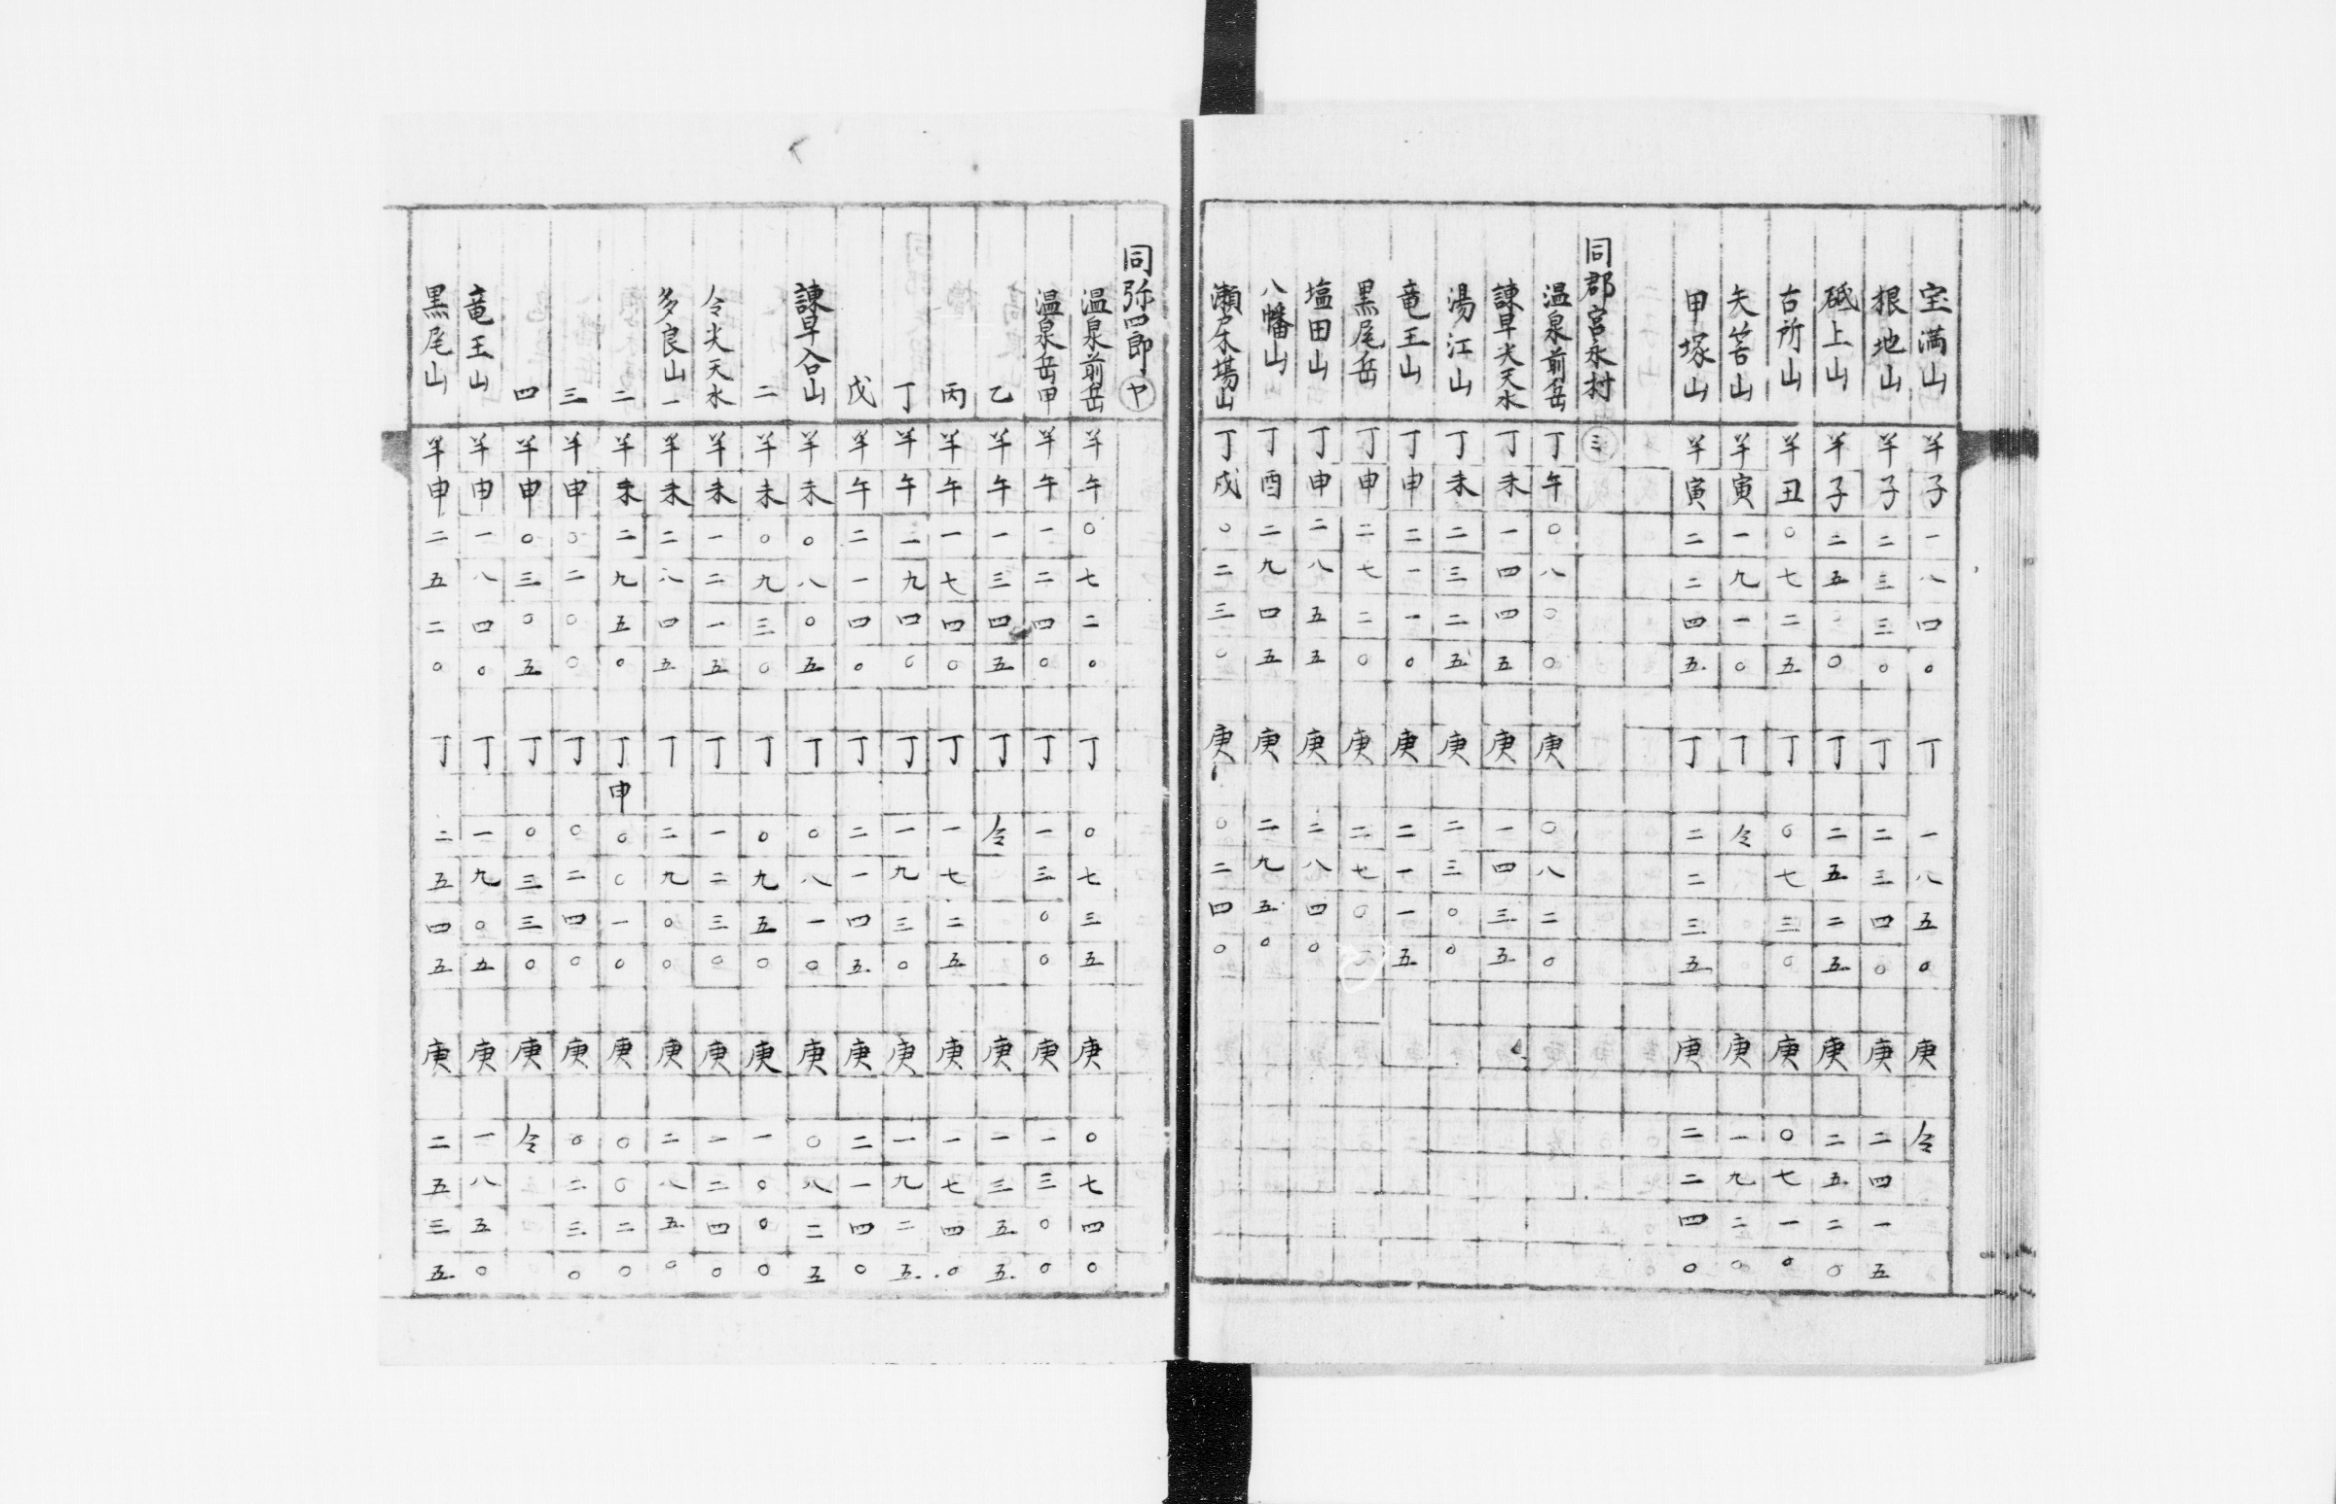 宝満山 羊子一八四〇 丁一八五〇 庚仝
根地山 羊子二三三〇 丁二三四〇 庚二四一五
砥上山 羊子二五〇〇 丁二五二五 庚二五二〇
古所山 羊丑〇七二五 丁〇七三〇 庚〇七一〇
矢筈山 羊寅一九一〇 丁仝 庚一九二〇
甲塚山 羊寅二二四五 丁二二三五 庚二二四〇
同郡宮永村 ミ
温泉前岳 丁午〇八〇〇 庚〇八二〇
諌早尖天水 丁未一四四五 庚一四三五
湯江山 丁未二三二五 庚二三〇〇
竜王山 丁申二一一〇 庚二一一五
黒尾岳 丁申二七二〇 庚二七〇〇
塩田山 丁申二八五五 庚二八四〇
八幡山 丁酉二九四五 庚二九五〇
瀬戸木場山 丁戌〇二三〇 庚〇二四〇
同弥四郎 ヤ
温泉前岳 羊午〇七二〇 丁〇七三五 庚〇七四〇
温泉岳甲 羊午一二四〇 丁一三〇〇 庚一三〇〇
乙 羊午一三四五 丁仝 庚一三五五
丙 羊午一七四〇 丁一七二五 庚一七四〇
丁 羊午一九四〇 丁一九三〇 庚一九二五
戊 羊午二一四〇 丁二一四五 庚二一四〇
諌早合山 羊未〇八〇五 丁〇八一〇 庚〇八二五
二 羊未〇九三〇 丁〇九五〇 庚一〇〇〇
仝尖天水 羊未一二一五 丁一二三〇 庚一二四〇
多良山一 羊未二八四五 丁二九〇〇 庚二八五〇
二 羊未二九五〇 丁申〇〇一〇 庚〇〇二〇
三 羊申〇二〇〇 丁〇二四〇 庚〇二三〇
四 羊申〇三〇五 丁〇三三〇 庚仝
竜王山 羊申一八四〇 丁一九〇五 庚一八五〇
黒尾山 羊申二五二〇 丁二五四五 庚二五三五